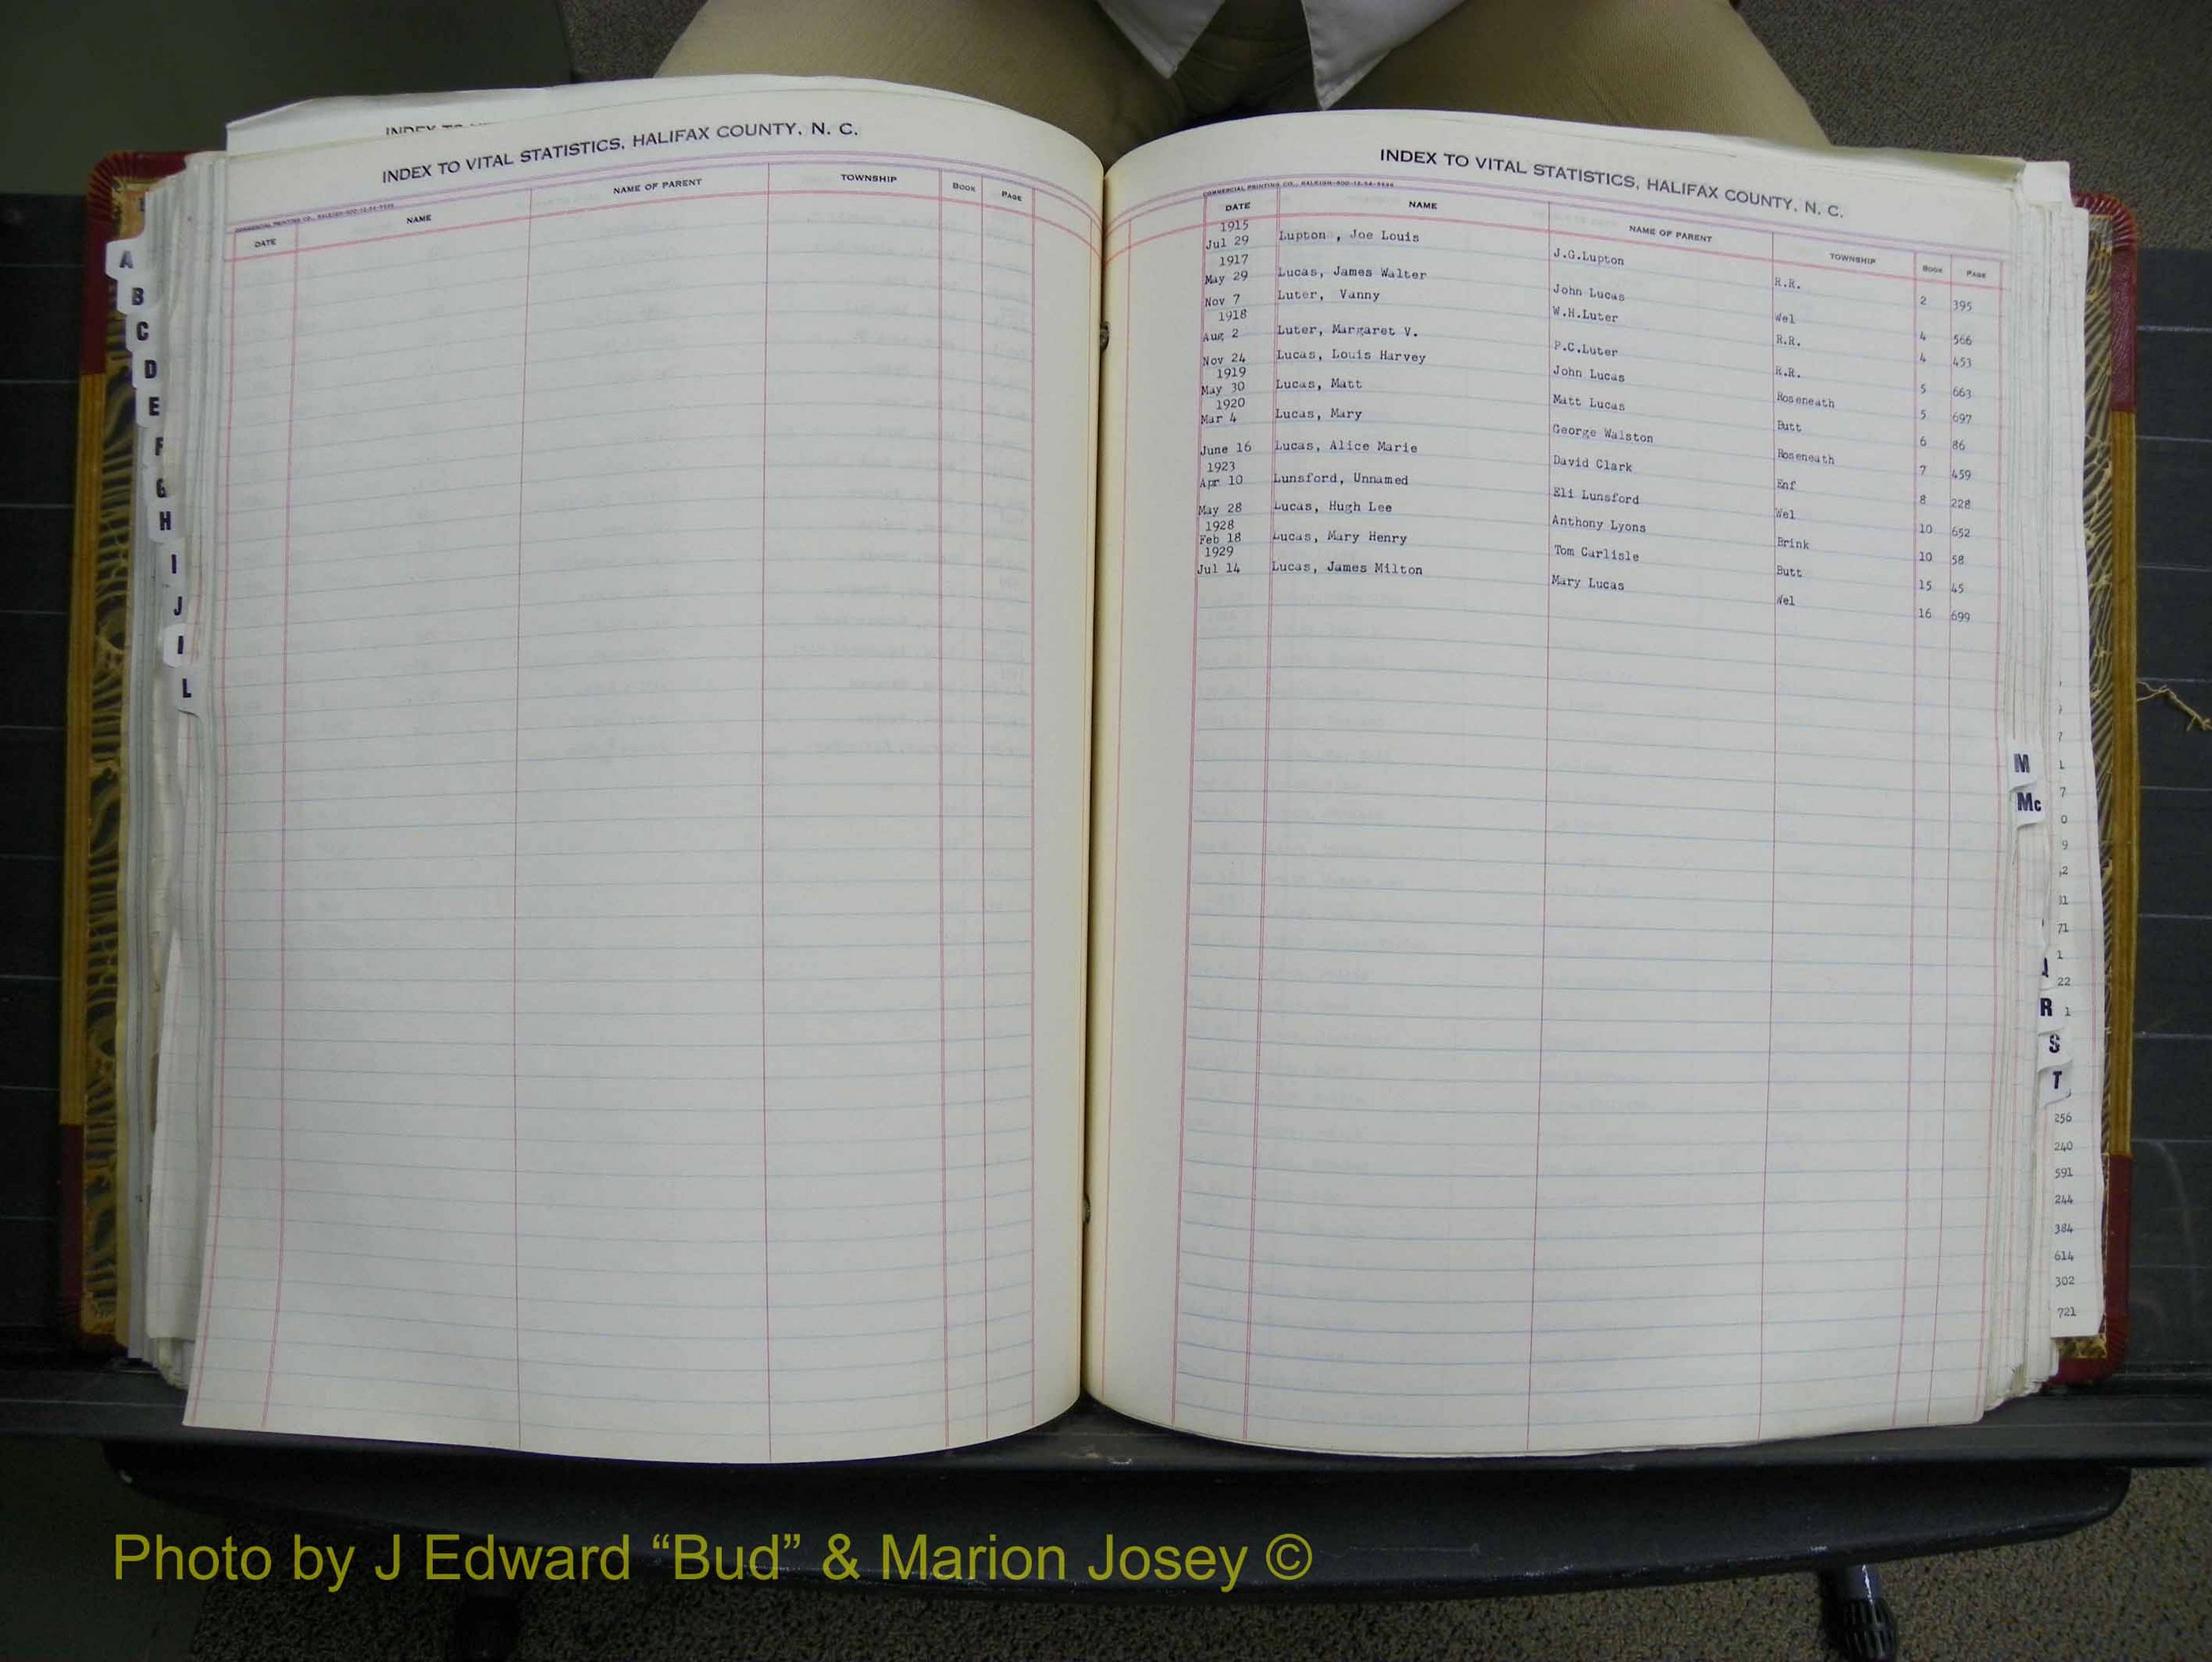 INDEX TO VITAL STATISTICS, HALIFAX COUNTY, N. C.
COMMERCIAL PRINTING CO., RALEIGH
DATE NAME NAME OF PARENT TOWNSHIP BOOK PAGE
A
B
C
D
E
F
G
H
I
J
L
INDEX TO VITAL STATISTICS, HALIFAX COUNTY, N. C.
COMMERCIAL PRINTING CO., RALEIGH
DATE NAME NAME OF PARENT TOWNSHIP BOOK PAGE
1915
Jul 29 Lupton, Joe Louis J.G.Lupton R.R. 2 395
1917
May 29 Lucas, James Walter John Lucas Wel 4 566
Nov 7 Luter, Vanny W.H.Luter R.R. 4 453
1918
Aug 2 Luter, Margaret V. P.C.Luter R.R. 5 663
Nov 24 Lucas, Louis Harvey John Lucas Roseneath 5 697
1919
May 30 Lucas, Matt Matt Lucas Butt 6 86
1920
Mar 4 Lucas, Mary George Walston Roseneath 7 459
June 16 Lucas, Alice Marie David Clark Enf 8 228
1923
Apr 10 Lunsford, Unnamed Eli Lunsford Wel 10 652
May 28 Lucas, Hugh Lee Anthony Lyons Brink 10 58
1928
Feb 18 Lucas, Mary Henry Tom Carlisle Butt 15 45
1929
Jul 14 Lucas, James Milton Mary Lucas Wel 16 699
M
Mc
R
S
T
71
22
256
240
591
244
384
614
302
721
Photo by J Edward “Bud” & Marion Josey ©